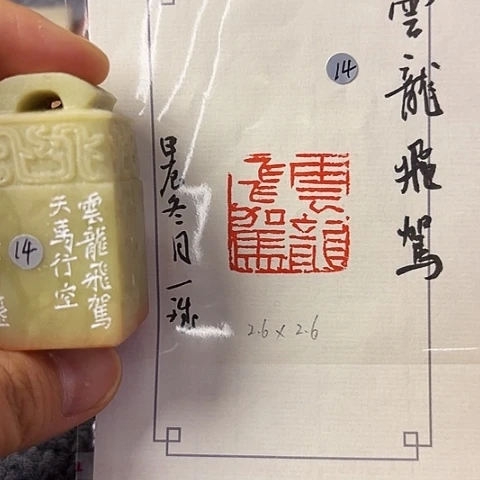 雲龍飛駕
14
雲龍飛駕
2.6 x 2.6
雲龍飛駕
天馬行空
14